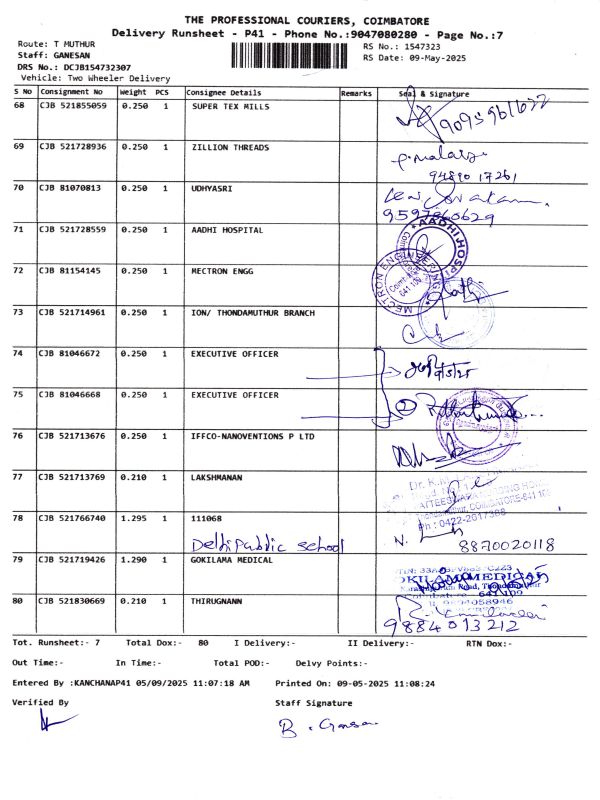 THE PROFESSIONAL COURIERS, COIMBATORE
Delivery Runsheet - P41 - Phone No.:9047080280 - Page No.:7
Route: T MUTHUR RS No.: 1547323
Staff: GANESAN RS Date: 09-May-2025
DRS No.: DCJB154732307
Vehicle: Two Wheeler Delivery
S NO Consignment No Weight PCS Consignee Details Remarks Seal & Signature
68 CJB 521855059 0.250 1 SUPER TEX MILLS
69 CJB 521728936 0.250 1 ZILLION THREADS
94890 17261
70 CJB 81070813 0.250 1 UDHYASRI
9597860629
71 CJB 521728559 0.250 1 AADHI HOSPITAL
AADHI HOSPI
72 CJB 81154145 0.250 1 MECTRON ENGG
MECTRON ENG
641 109
73 CJB 521714961 0.250 1 ION/ THONDAMUTHUR BRANCH
74 CJB 81046672 0.250 1 EXECUTIVE OFFICER
9/5/25
75 CJB 81046668 0.250 1 EXECUTIVE OFFICER
2
76 CJB 521713676 0.250 1 IFFCO-NANOVENTIONS P LTD
77 CJB 521713769 0.210 1 LAKSHMANAN
Dr. K.M
Thondamuthur, COIMBATORE-641 109
Ph : 0422-2617388
78 CJB 521766740 1.295 1 111068
Delhi public school
N.
8870020118
79 CJB 521719426 1.290 1 GOKILAMA MEDICAL
MEDICAL
Road, Thondamuthur
641 109
80 CJB 521830669 0.210 1 THIRUGNANN
9884013212
Tot. Runsheet:- 7 Total Dox:- 80 I Delivery:- II Delivery:- RTN Dox:-
Out Time:- In Time:- Total POD:- Delvy Points:-
Entered By :KANCHANAP41 05/09/2025 11:07:18 AM Printed On: 09-05-2025 11:08:24
Verified By Staff Signature
B. Ganesan